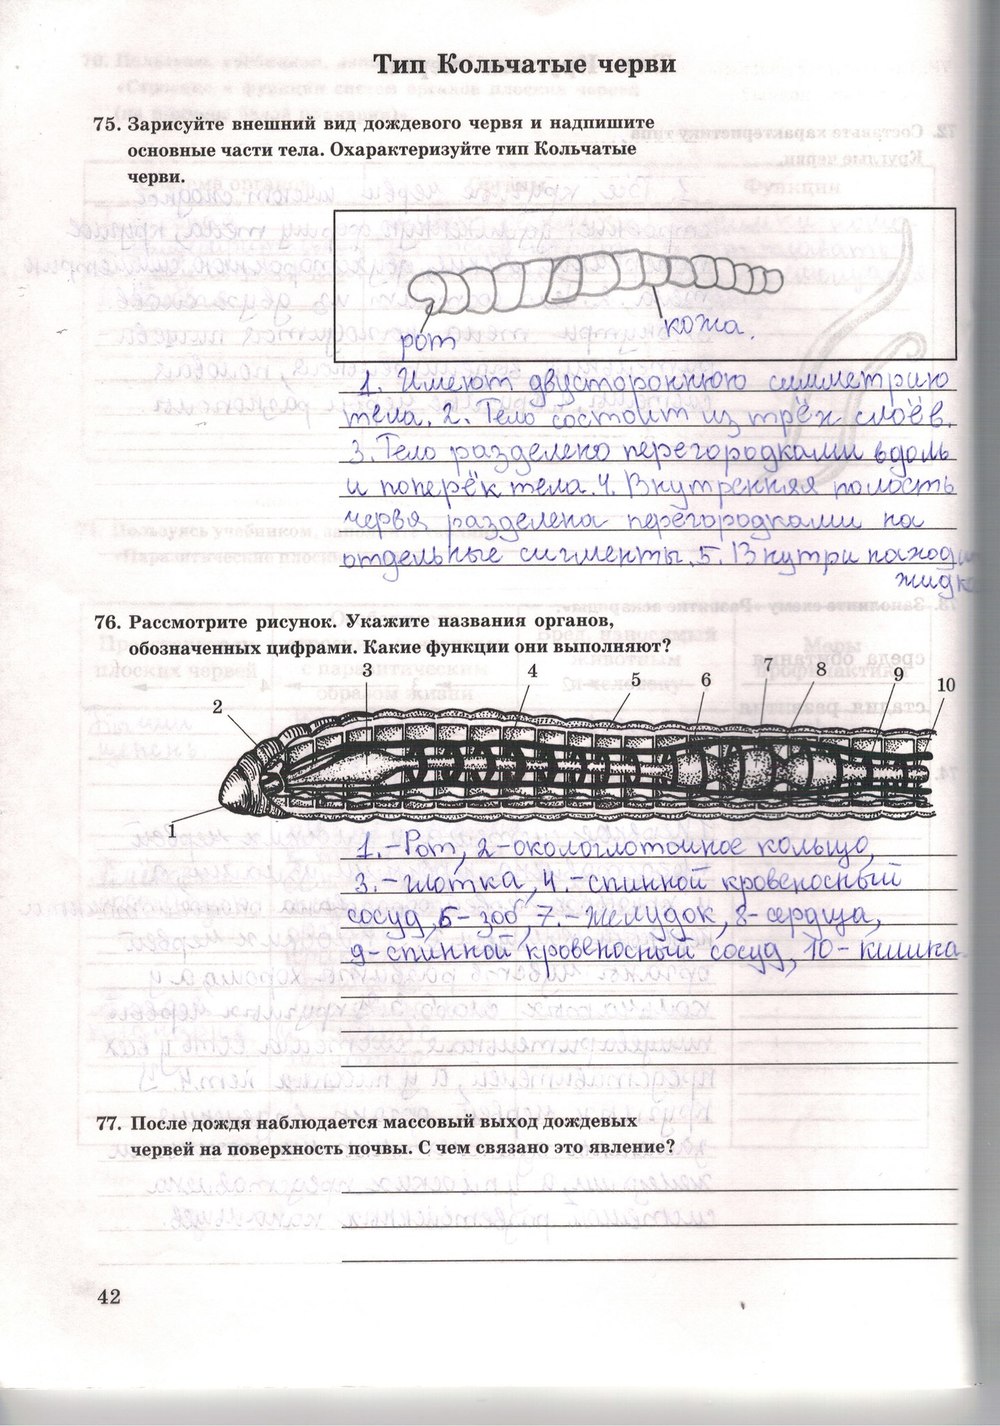 Тип Кольчатые черви
75. Зарисуйте внешний вид дождевого червя и надпишите
основные части тела. Охарактеризуйте тип Кольчатые
черви.
рот
кожа.
1. Имеют двустороннюю симметрию
тела. 2. Тело состоит из трёх слоёв.
3. Тело разделено перегородками вдоль
и поперёк тела. 4. Внутренняя полость
червя разделена перегородками на
отдельные сигменты. 5. Внутри наход
жидк
76. Рассмотрите рисунок. Укажите названия органов,
обозначенных цифрами. Какие функции они выполняют?
1 2 3 4 5 6 7 8 9 10
1.-Рот, 2-окологлоточное кольцо,
3.-глотка, 4.-спинной кровеносный
сосуд, 6-зоб, 7.-желудок, 8-сердца,
9-спинной кровеносный сосуд, 10-кишка.
77. После дождя наблюдается массовый выход дождевых
червей на поверхность почвы. С чем связано это явление?
42